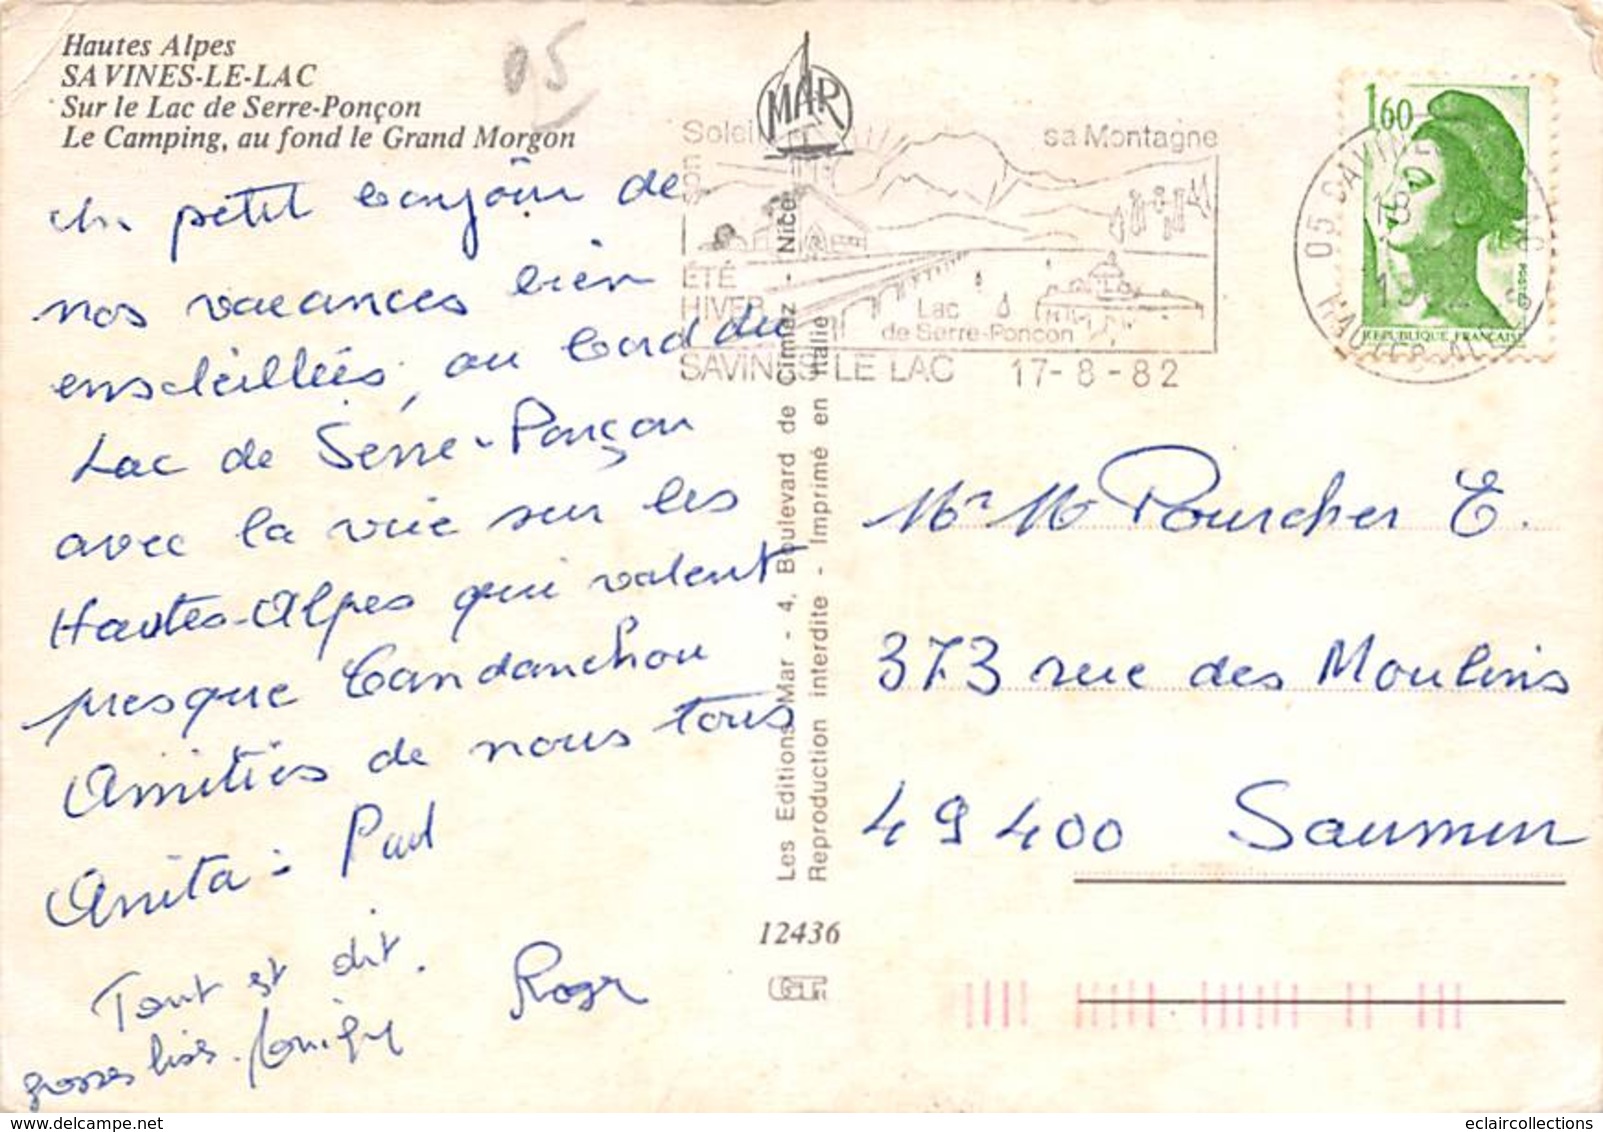 Hautes Alpes
SAVINES-LE-LAC
Sur le Lac de Serre-Ponçon
Le Camping, au fond le Grand Morgon
05
Un petit bonjour de
nos vacances bien
ensoleillées, au bord du
Lac de Serre-Ponçon
avec la vue sur les
Hautes-Alpes qui valent
presque Candanchou
Amitiés de nous tous
Anita - Paul
Tout est dit.
Roger
grosses bises.
MAR
Les Editions Mar - 4, Boulevard de Cimiez - Nice
Reproduction interdite - Imprimé en Italie
12436
Soleil
sa Montagne
son
ÉTÉ
HIVER
Lac
de Serre-Ponçon
SAVINES LE LAC 17-8-82
1,60
POSTES
REPUBLIQUE FRANÇAISE
05 SAVINES
HAUTES-ALPES
Mr Me Pourcher E.
373 rue des Moulins
49400 Saumur
eclaircollections